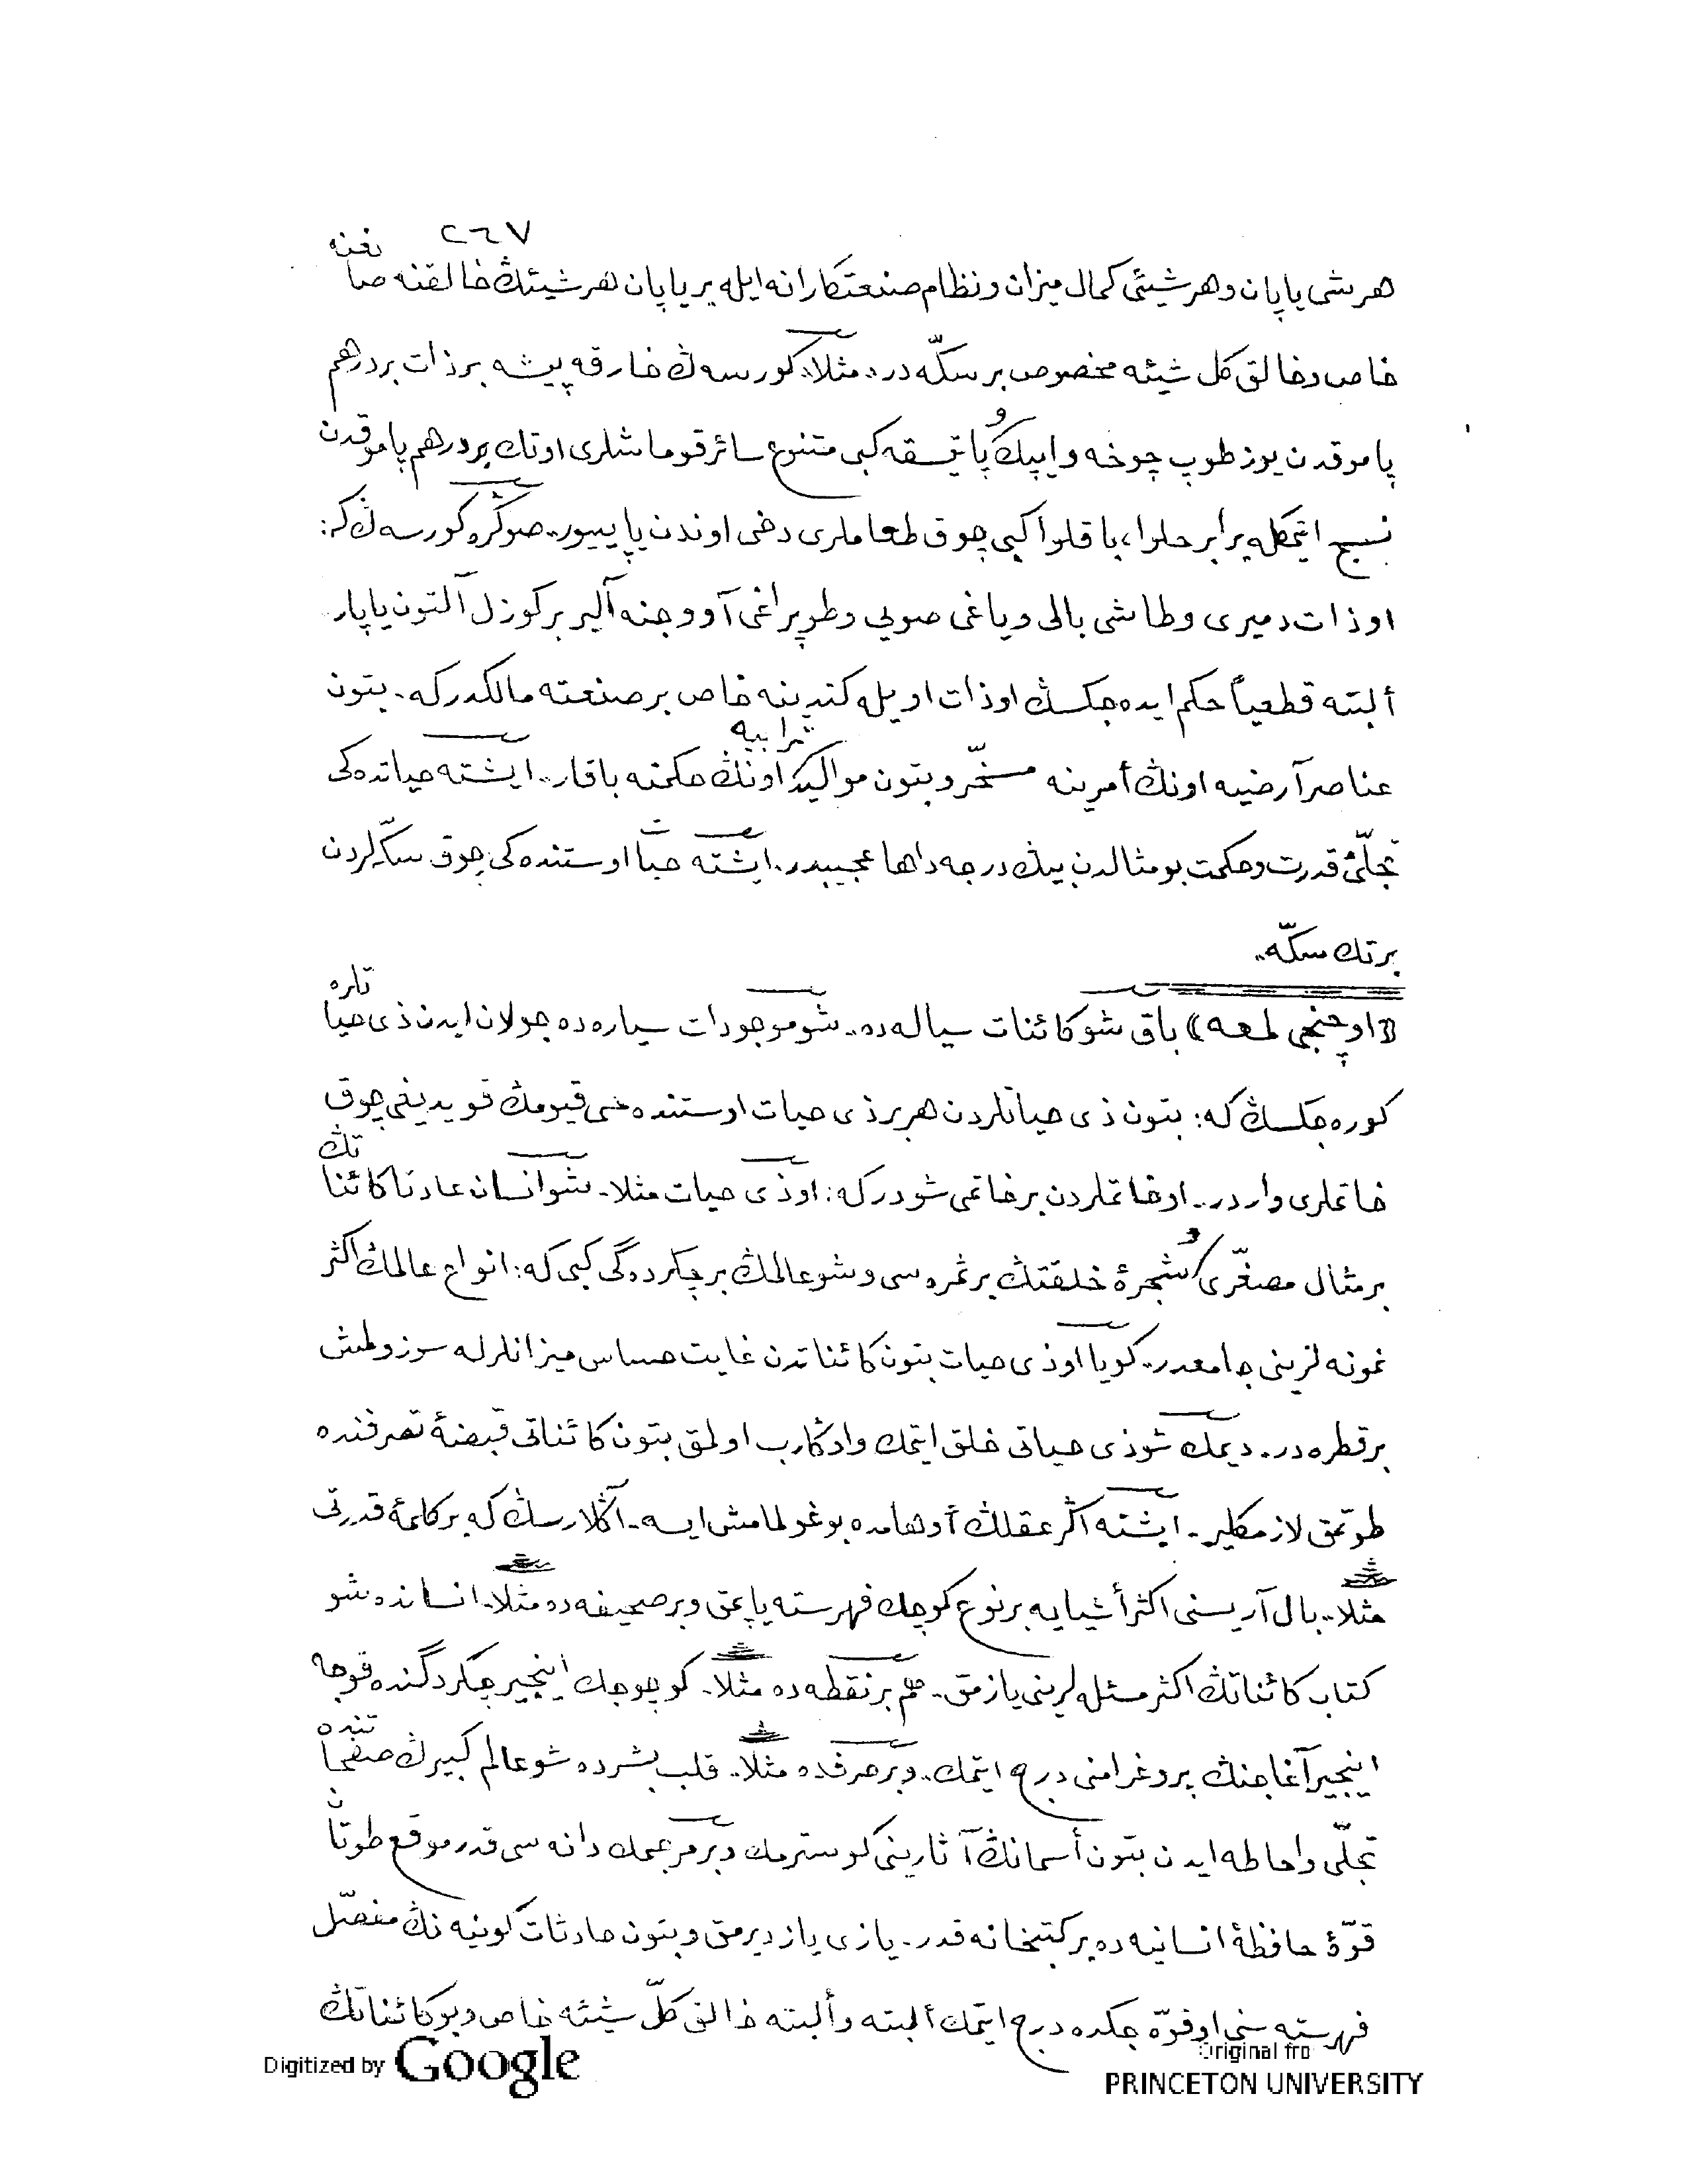 ٢٦٧
هر شی یاپان و هر شیئی کمال میزان و نظام صنعتکارانه ایله بر یاپان هر شیئڭ خالقنه صانعنه
خاص و خالق کل شیئه مخصوص بر سکّه در. مثلا، کورسه ڭ خارقه پیشه بر ذات بر درهم
پاموقدن یوز طوپ چوخه و ایپك ویا پاتیسقه کبی متنوع سائر قوماشلری او تك بر درهم پاموقدن
نسج ایتمکله برابر حلوا، باقلوا کبی چوق طعاملری دخی اوندن یاپییور.. صوڭره کورسه ڭ که:
او ذات دمیری و طاشی بالی و یاغی صویی و طوپراغی آووجنه آلیر بر کوزل آلتون یاپار.
ألبته قطعیاً حکم ایده جکسڭ او ذات اویله کندینه خاص بر صنعته مالکدرکه. بتون
عناصر آرضیه اونڭ أمرینه مسخّر و بتون موالید ترابیه اونڭ حکمنه باقار.. ایشته حیاتده کی
تجلّئ قدرت و حکمت بو مثالدن بیڭ درجه داها عجیبدر. ایشته حیات اوستنده کی چوق سکّه لردن
بر تك سکّه..
((اوچنجی لمعه)) باق شو کائنات سیاله ده.. شو موجودات سیاره ده جولان ایدن ذی حیاتلره
کوره جکسڭ که: بتون ذی حیاتلردن هر بر ذی حیات اوستنده حی قیومڭ قویدیغی چوق
خاتملری واردر.. او خاتملردن بر خاتمی شودرکه: او ذی حیات مثلا. شو انسان عادتا کائناتڭ
بر مثال مصغّری شجرۀ خلقتڭ بر ثمره سی و شو عالمڭ بر چکرده گی کبی که: انواع عالمڭ اکثر
نمونه لرینی جامعدر.. کویا او ذی حیات بتون کائناتدن غایت حساس میزانلرله سوزولمش
بر قطره در. دیمك شو ذی حیاتی خلق ایتمك و اوڭا رب اولمق بتون کائناتی قبضۀ تصرفنده
طوتمق لازمکلیر. ایشته اگر عقلڭ أوهامده بوغولمامش ایسه. آڭلارسڭ که بر کلمۀ قدرتی
مثلا.. بال آریسنی اکثر أشیایه بر نوع کوچك فهرسته یاپمق و بر صحیفه ده مثلا. انسانده شو
کتاب کائناتڭ اکثر مسئله لرینی یازمق. هم بر نقطه ده مثلا. کوچوجك اینجیر چکردگنده قوجه
اینجیر آغاجنڭ پروغرامنی درج ایتمك.. و بر حرفده مثلاً.. قلب بشرده شو عالم کبیرڭ صفحاتنده
تجلّی و احاطه ایدن بتون أسمانڭ آثارینی کوسترمك و بر مرجمك دانه سی قدر موقع طوتان
قوّۀ حافظۀ انسانیه ده بر کتبخانه قدر. یازی یازدیرمق و بتون حادثات کونیه نڭ مفصّل
فهرسته سنی او قوّه جکده درج ایتمك ألبته و ألبته خالق کلّ شیئه خاص و بو کائناتڭ
Digitized by Google
Original fro
PRINCETON UNIVERSITY